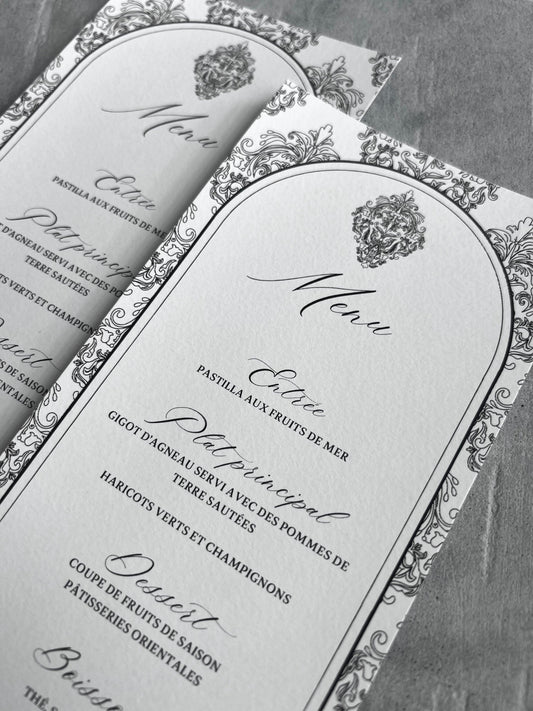 Menu
Entrée
PASTILLA AUX FRUITS DE MER
Plat principal
GIGOT D'AGNEAU SERVI AVEC DES POMMES DE
TERRE SAUTÉES
HARICOTS VERTS ET CHAMPIGNONS
Dessert
COUPE DE FRUITS DE SAISON
PÂTISSERIES ORIENTALES
THÉ,
Menu
Entrée
PASTILLA AUX FRUITS DE MER
Plat principal
D'AGNEAU SERVI AVEC DES POMMES
TERRE SAUTÉES
VERTS ET
Dessert
FRUITS DE SAISON
ORIENTALES